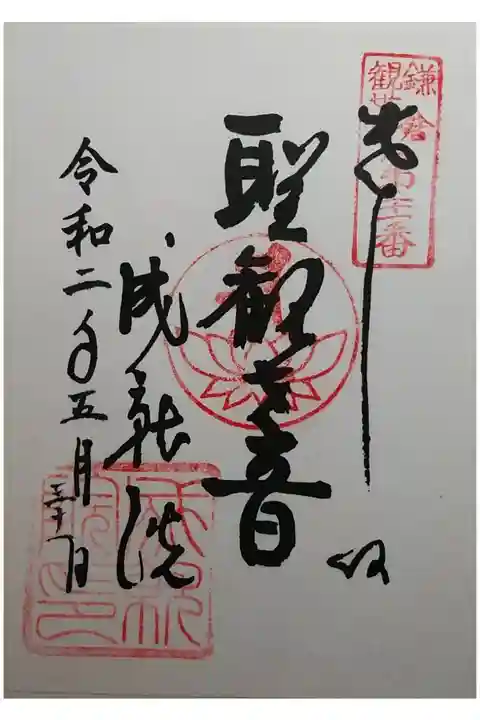 鎌倉
観世音
第廿一番
奉拝
聖観世音
成就院
令和二年五月